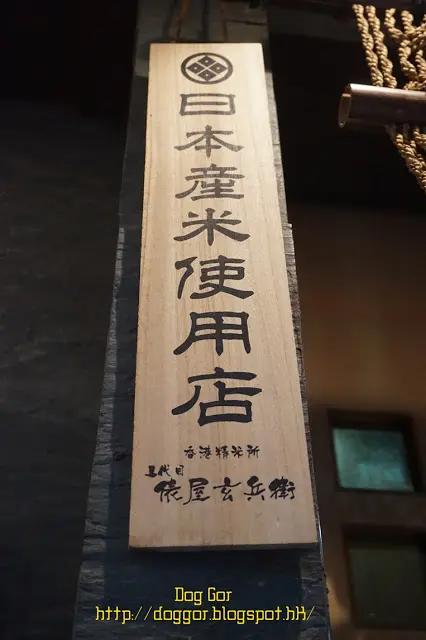 日本産米使用店
香港精米所
五代目
俵屋玄兵衛
Dog Gor
http://doggor.blogspot.hk/